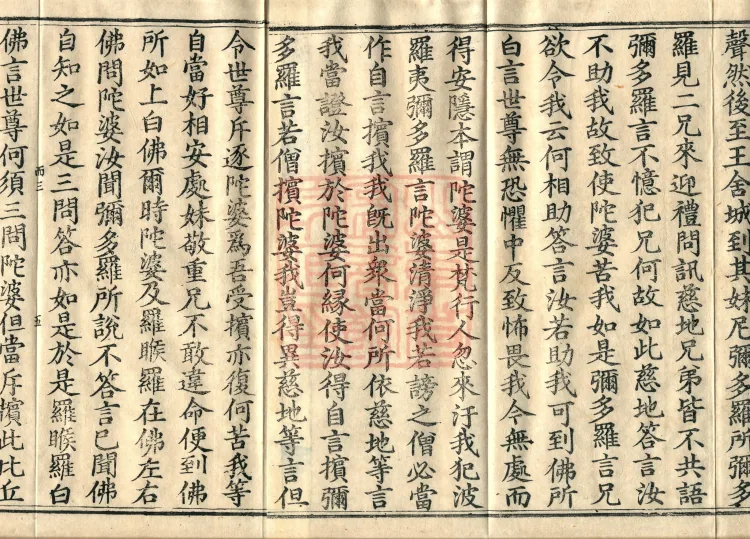 聲然後至王舍城到其妹尼彌多羅所彌多
羅見二兄來迎禮問訊慈地兄弟皆不共語
彌多羅言不憶犯兄何故如此慈地答言汝
不助我故致使陀婆苦我如是彌多羅言兄
欲令我云何相助答言汝若助我可到佛所
白言世尊無恐懼中反致怖畏我今無處而
得安隱本謂陀婆是梵行人忽來汙我犯波
羅夷彌多羅言陀婆清淨我若謗之僧必當
作自言擯我我旣出衆當何所依慈地等言
我當證汝擯於陀婆何緣使汝得自言擯彌
多羅言若僧擯陀婆我豈得異慈地等言但
令世尊斥逐陀婆爲吾受擯亦復何苦我等
自當好相安處妹敬重兄不敢違命便到佛
所如上白佛爾時陀婆及羅睺羅在佛左右
佛問陀婆汝聞彌多羅所說不答言已聞佛
自知之如是三問答亦如是於是羅睺羅白
而三 五
佛言世尊何須三問陀婆但當斥擯此比丘